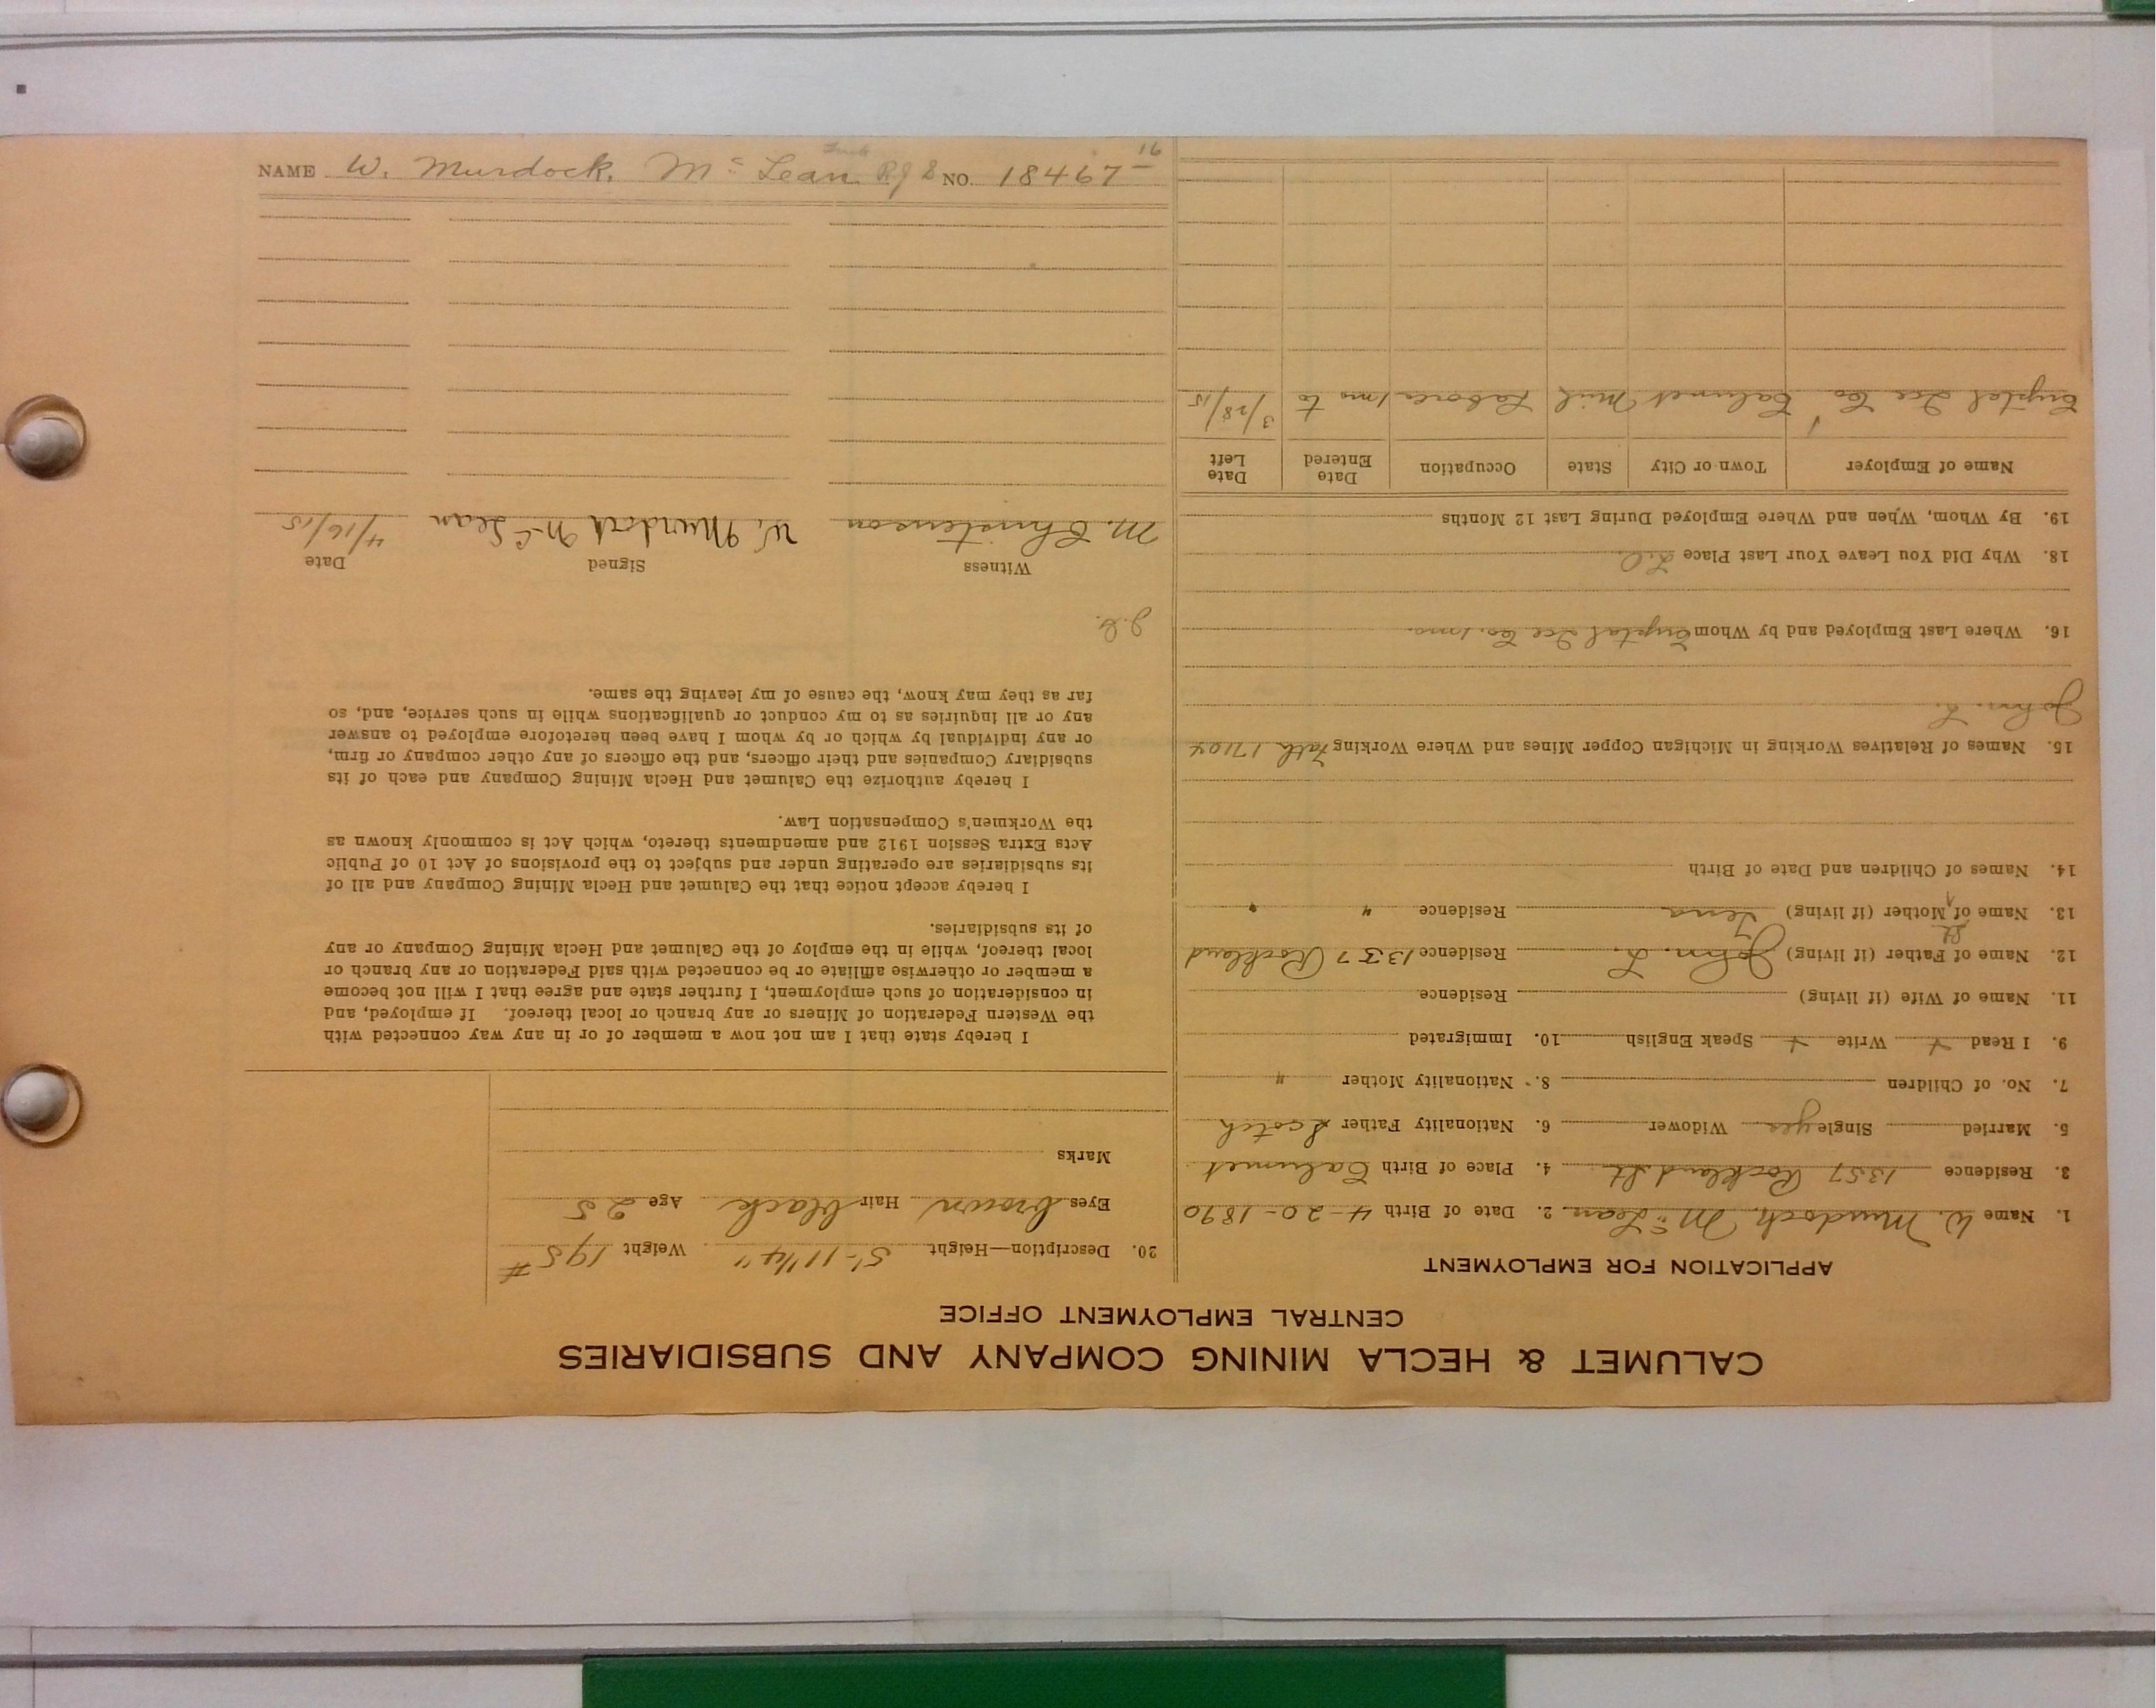 CALUMET & HECLA MINING COMPANY AND SUBSIDIARIES
CENTRAL EMPLOYMENT OFFICE
APPLICATION FOR EMPLOYMENT
1. Name W. Murdoch. Mc Lean. 2. Date of Birth 4-20-1890
3. Residence 1357 Rockland St. 4. Place of Birth Calumet
5. Married Single yes Widower 6. Nationality Father Scotch
7. No. of Children 8. Nationality Mother "
9. I Read + Write + Speak English 10. Immigrated
11. Name of Wife (if living) Residence
12. Name of Father (if living) John. L. Residence 1357 Rockland
13. Name of St Mother (if living) Lena Residence " "
14. Names of Children and Date of Birth
15. Names of Relatives Working in Michigan Copper Mines and Where Working Fath 17104
John. L.
16. Where Last Employed and by Whom Crystal Ice Co. 1 mo.
18. Why Did You Leave Your Last Place
19. By Whom, When and Where Employed During Last 12 Months
Name of Employer Town or City State Occupation Date Entered Date Left
Crystal Ice Co. Calumet Mich Laborer 1 mo to 3/28/15
20. Description—Height 5'-11 1/4" Weight 195 #
Eyes brown Hair black Age 25
Marks
I hereby state that I am not now a member of or in any way connected with
the Western Federation of Miners or any branch or local thereof. If employed, and
in consideration of such employment, I further state and agree that I will not become
a member or otherwise affiliate or be connected with said Federation or any branch or
local thereof, while in the employ of the Calumet and Hecla Mining Company or any
of its subsidiaries.
I hereby accept notice that the Calumet and Hecla Mining Company and all of
its subsidiaries are operating under and subject to the provisions of Act 10 of Public
Acts Extra Session 1912 and amendments thereto, which Act is commonly known as
the Workmen's Compensation Law.
I hereby authorize the Calumet and Hecla Mining Company and each of its
subsidiary Companies and their officers, and the officers of any other company or firm,
or any individual by which or by whom I have been heretofore employed to answer
any or all inquiries as to my conduct or qualifications while in such service, and, so
far as they may know, the cause of my leaving the same.
Witness Signed Date
M. Christenson W. Murdoch Mc Lean 4/16/15
NAME W. Murdock. Mc Lean. NO. 18467 16